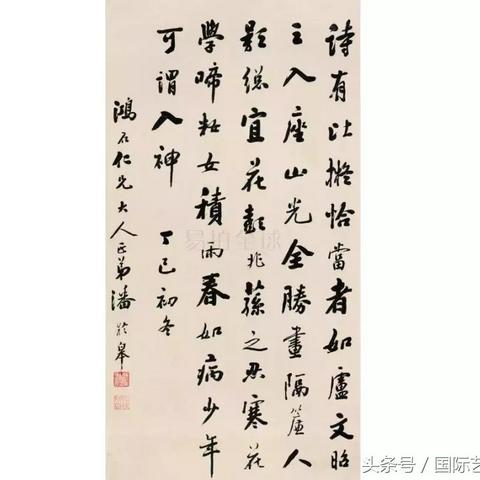 詩有比擬恰當者如盧文昭
之入座山光全勝畫隔簾人
影總宜花彭兆蓀之忍寒花
學啼妝女積雨春如病少年
可謂入神 丁巳初冬
鴻石仁兄大人正弟潘齡皋
易拍全球
头条号 / 国际艺